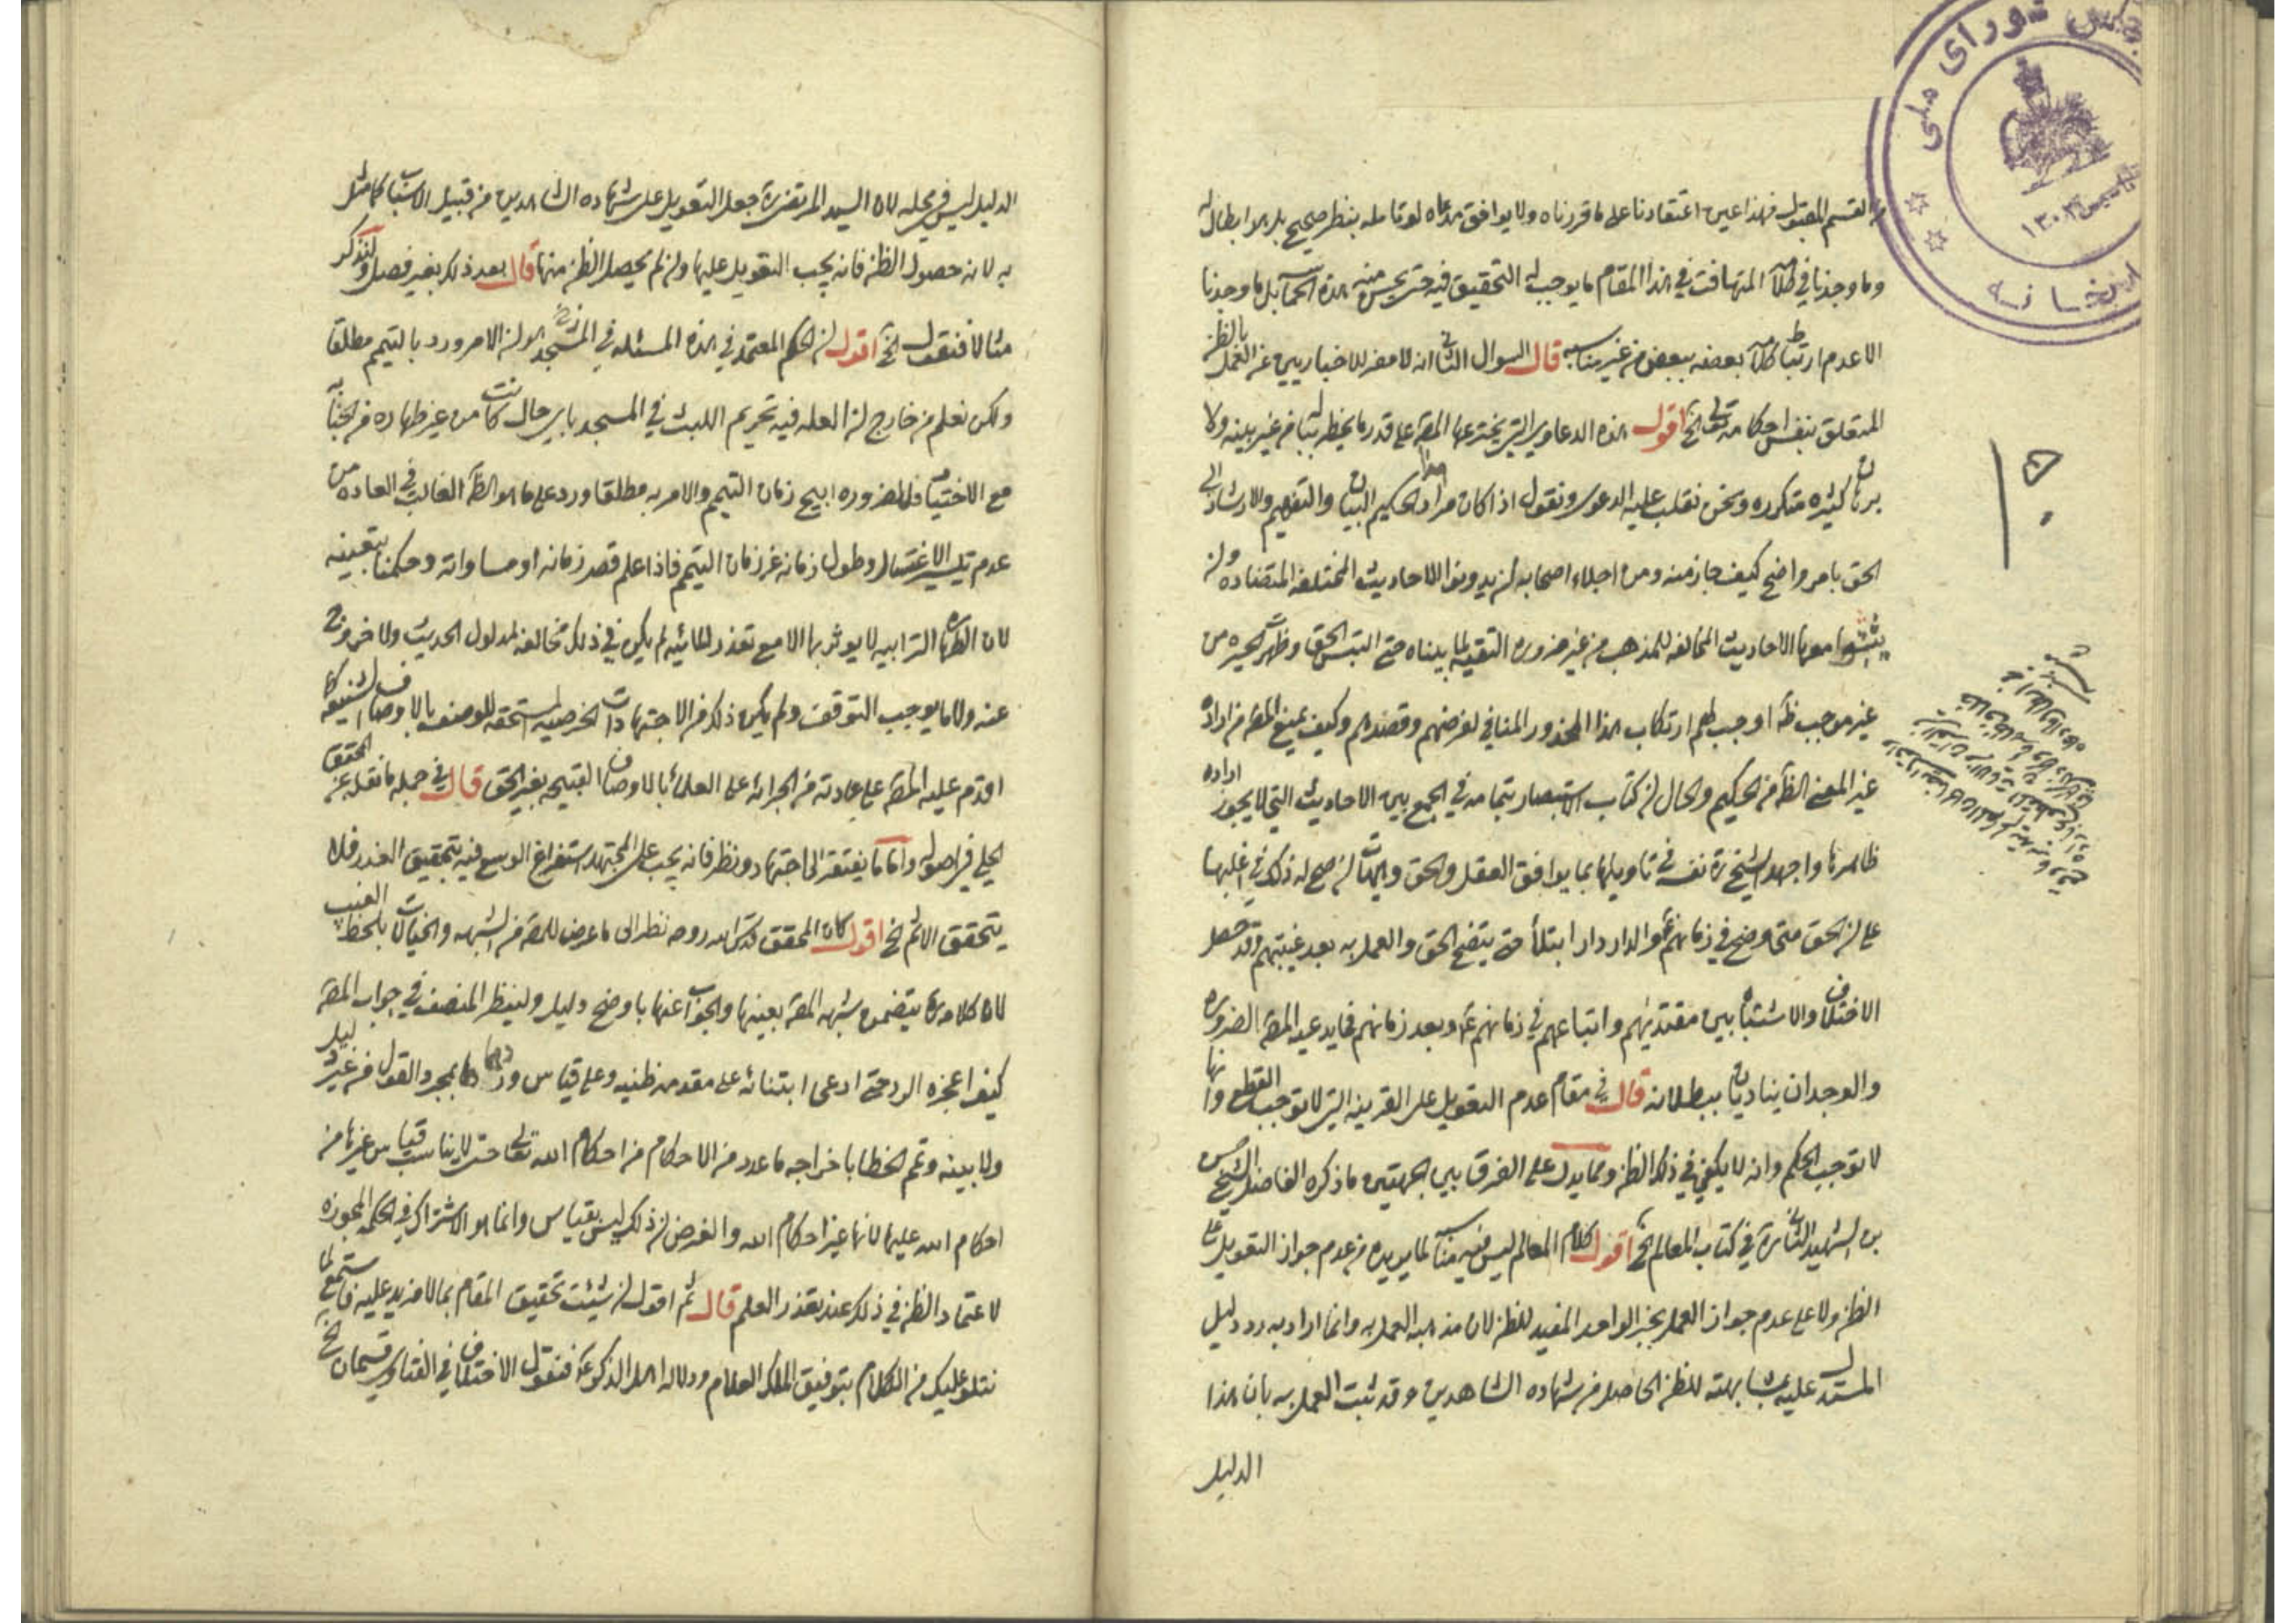 القسم المقبول فهذا عين اعتقادنا على ما قررناه ولا يوافق مدعاه لو تامله بنظر صحيح بل هو ابطال له
وما وجدنا في كلامه المتهافت في هذا المقام ما يوجب له التحقيق فيه حتى يحسن منه هذه بل ما وجدنا
الا عدم ارتباط كلامه بعضه ببعض من غير مناسبه قال السوال الثاني انه لا مفر للاخباريين عن العمل بالظن
المتعلق بنفس احكامه تعالى الخ اقول هذه الدعاوى التي يخترعها المص على قدر ما يخطر له من غير بينه ولا
برهان كثيره متكرره ونحن نقلب عليه الدعوى ونقول اذا كان مراد الحكيم البيان والتفهيم والارشاد الى
الحق بامر واضح كيف جاز منه ومن اجلاء اصحابه ان يدونوا الاحاديث المختلفه المتضاده وان
يثبتوا معها الاحاديث المخالفه للمذهب من غير ضروره التقيه لما بيناه حتى التبس الحق وظهر الحيره من
غير موجب ظ اوجب لهم ارتكاب هذا المحذور المنافي لغرضهم وقصدهم وكيف يمنع المص من اراده
غير المعنى الظ من الحكيم والحال ان كتاب الاستبصار بتمامه في الجمع بين الاحاديث التي لا يجوز اراده
ظاهرها واجهد الشيخ ره نفسه في تاويلها بما يوافق العقل والحق وهيهات ان صح له ذلك في اغلبها
على ان الحق متى وضح في زمانهم ع والدار دار ابتلاء حتى يتضح الحق والعمل به بعد غيبتهم وقد حصل
الاختلاف والاشتباه بين مقتديهم واتباعهم في زمانهم ع وبعد زمانهم فما يدعيه المص الضروره
والوجدان يناديان ببطلانه قال في مقام عدم التعويل على القرينه التي لا توجب القطع وانها
لا توجب الحكم وانه لا يكفي في ذلك الظن ومما يدل على الفرق بين الجهتين ما ذكره الفاضل الشيخ حسن
بن الشهيد الثاني ره في كتاب المعالم الخ اقول كلام المعالم ليس فيه لما يريده من عدم جواز التعويل على
الظن ولا على عدم جواز العمل بخبر الواحد المفيد للظن لان مذهبه العمل به وانما اراد به رد دليل
المستدل عليه بمشابهته للظن الحاصل من شهاده الشاهدين وقد ثبت العمل به بان هذا
الدليل
١٥٠
الدليل ليس في محله لان السيد المرتضى ره جعل التعويل على شهاده الشاهدين من قبيل الاسباب كما مثل
به لا من حصول الظن فانه يجب التعويل عليها وان لم يحصل الظن منها قال بعد ذلك بغير فصل ولنذكر
مثالا فنقول الخ اقول ان الحكم المعتمد في هذه المسئله في المسجد هو ان الامر ورد بالتيمم مطلقا
ولكن نعلم من خارج ان العله فيه تحريم اللبث في المسجد باي حال كانت من غير طهاره من الجنابه
مع الاختيار فللضروره ابيح زمان التيمم والامر به مطلقا ورد على ما هو الظ الغالب في العاده من
عدم تيسر الاغتسال وطول زمانه عن زمان التيمم فاذا علم قصر زمانه او مساواته وحكمنا بتعينه
لان الطهاره الترابيه لا يوثر بها الا مع تعذر المائيه لم يكن في ذلك مخالفه لمدلول الحديث ولا خروج
عنه ولا ما يوجب التوقف ولم يكن ذلك من الاجتهادات الخرصيه المستحقه للوصف بالاوصاف الشنيعه كما
اقدم عليه المص على عادته من الجرائه على العلماء بالاوصاف القبيحه بغير الحق قال في جمله ما نقله عن المحقق
الحلي في اصوله واما ما يفتقر الى اجتهاد ونظر فانه يجب على المجتهد استفراغ الوسع فيه بتحقيق العذر فلا
يتحقق الاثم الخ اقول كان المحقق قدس الله روحه نظر الى ما عرض للمص من الشبهه والخيالات بلحظ الغيب
لان كلامه ره يتضمن شبهه المص بعينها والجواب عنها باوضح دليل ولينظر المنصف في جواب المص
كيف اعجزه الرد حتى ادعى ابتنائه على مقدمه ظنيه وعلى قياس بمجرد القول من غير دليل
ولا بينه وتمم الخطا باخراجه ما عدد من الاحكام من احكام الله تعالى حتى لا يناسب قياس غيرها من
احكام الله عليها لانها غير احكام الله والغرض ان ذلك ليس بقياس وانما هو الاشتراك في الحكمه المجوزه
لاعتماد الظن في ذلك عند تعذر العلم قال ثم اقول ان شئت تحقيق المقام بما لا مزيد عليه فاستمع لما
نتلو عليك من الكلام بتوفيق الملك العلام ودلاله اهل الذكر ع فنقول الاختلاف في الفتاوى قسمان الخ